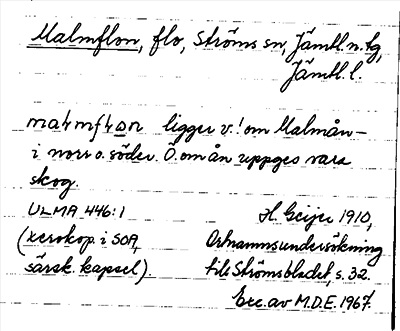 Malmflon, flo, Ströms sn, Jämtl. n. tg,
Jämtl. l.
ligger v. om Malmån –
i norr o. söder. Ö. om ån uppges vara
skog.
ULMA 446:1
H. Geijer 1910,
(xerokop. i SOA,
Ortnamnsundersökning
särsk. kapsel)
till Strömsbladet, s. 32.
Exc. av M.D.E. 1967.